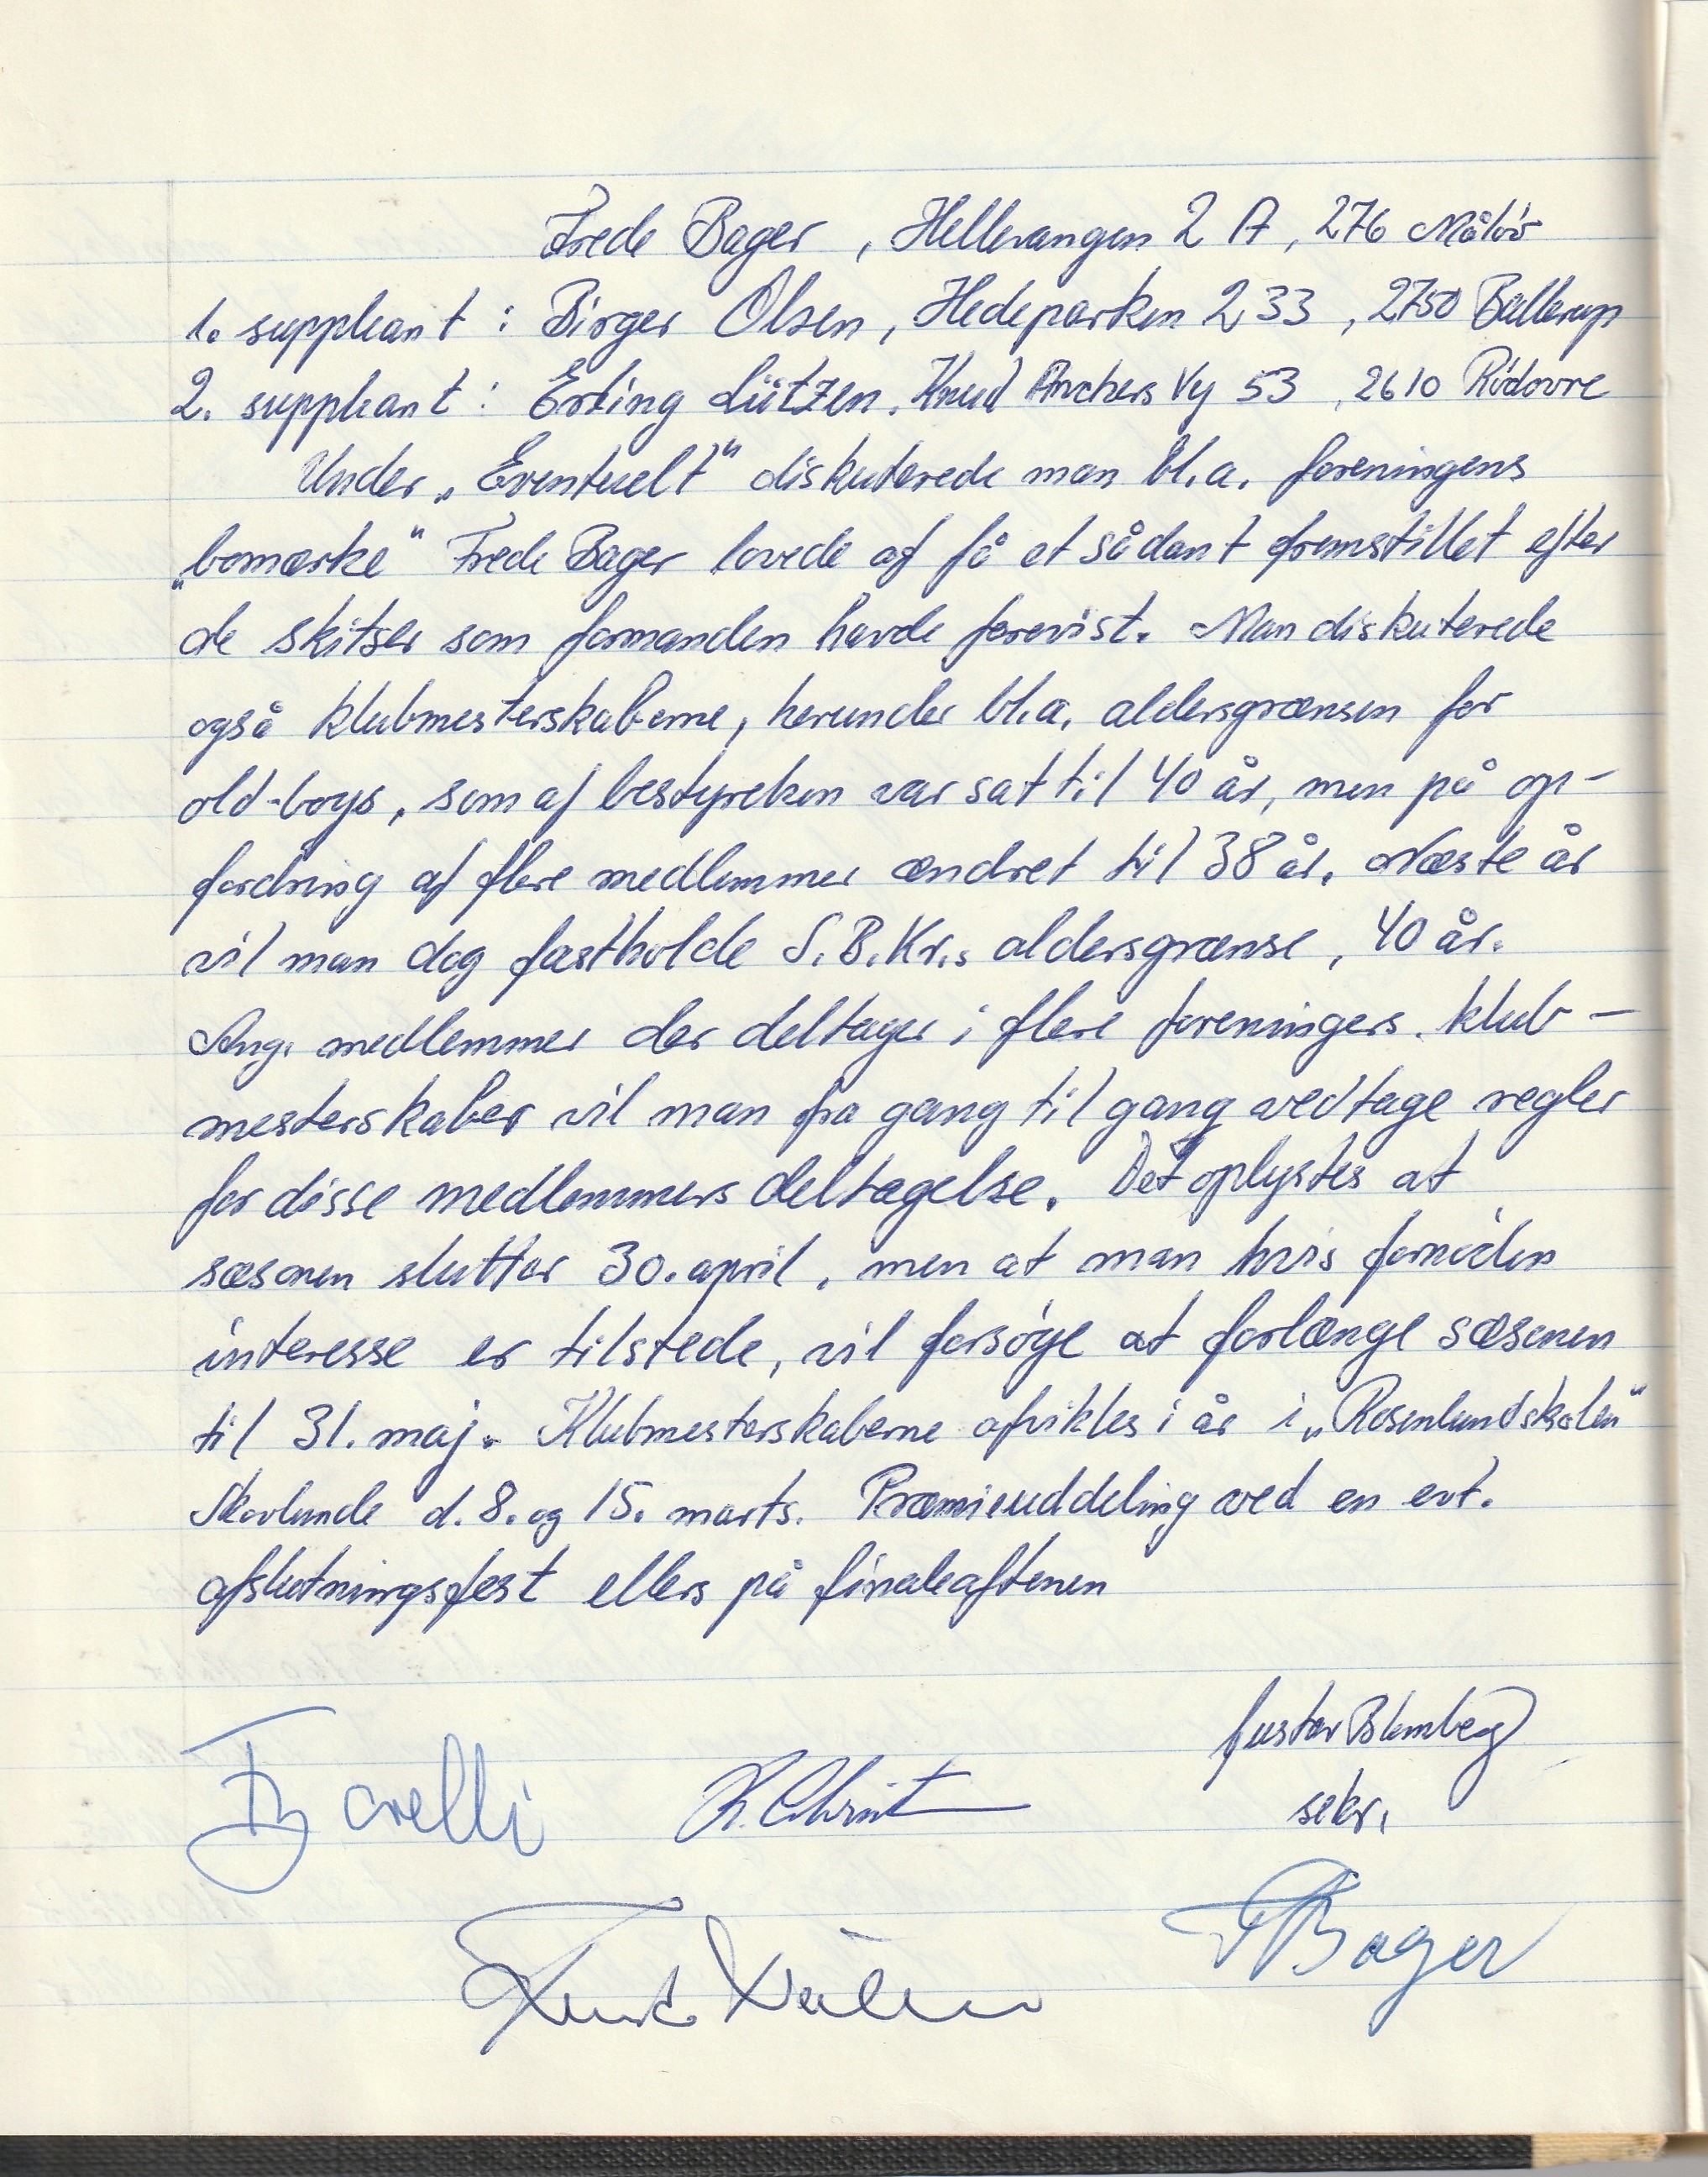 Frede Bager, Hellevangen 2 A, 276 Måløv
1. suppleant : Birger Olsen, Hedeparken 233, 2750 Ballerup
2. suppleant : Erling Lützen. Knud Anchers Vej 53, 2610 Rødovre
Under „Eventuelt“ diskuterede man bl.a. foreningens
„bomærke“ Frede Bager lovede af få et sådant fremstillet efter
de skitser som formanden havde forevist. Man diskuterede
også klubmesterskaberne, herunder bl.a. aldersgrænsen for
old-boys, som af bestyrelsen var sat til 40 år, men på op-
fordring af flere medlemmer ændret til 38 år. Næste år
vil man dog fastholde S.B.Kr.s aldersgrænse, 40 år.
Ang. medlemmer der deltager i flere foreningers. klub-
mesterskaber vil man fra gang til gang vedtage regler
for disse medlemmers deltagelse. Det oplystes at
sæsonen slutter 30. april, men at man hvis fornøden
interesse er tilstede, vil forsøge at forlænge sæsonen
til 31. maj. Klubmesterskaberne afvikles i år i „Rosenlundskolen“
Skovlunde d. 8. og 15. marts. Præmieuddeling ved en evt.
afslutningsfest ellers på finaleaftenen
Gustav Blomberg
sekr.
K. Christ
F Bager